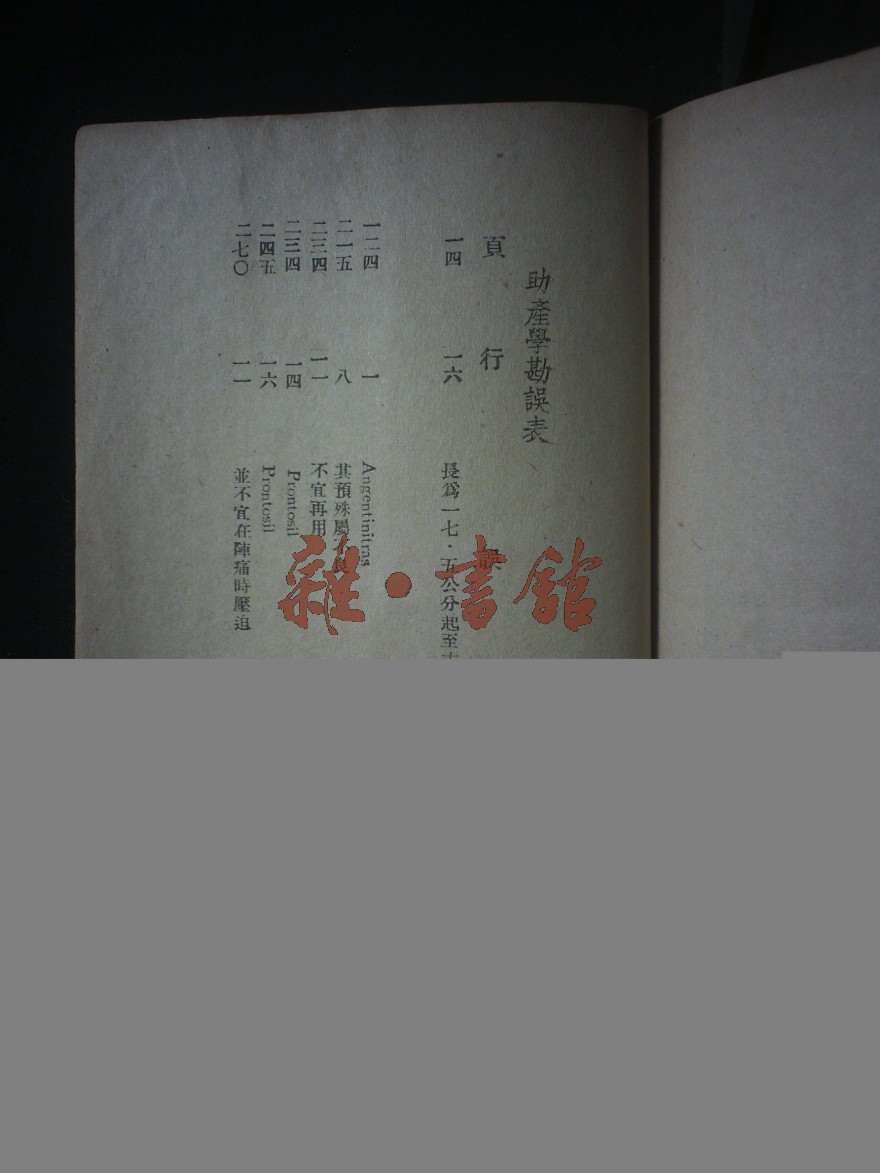 助產學勘誤表
頁 行 誤
一四 一六 長爲一七・五公分起至
一二四 一 Angentinitras
二一五 八 其預殊屬不良
二三四 一一 不宜再用
二三四 一四 Prontosil
二四五 一六 Prontosil
二七〇 一一 並不宜在陣痛時壓迫
雜・書館